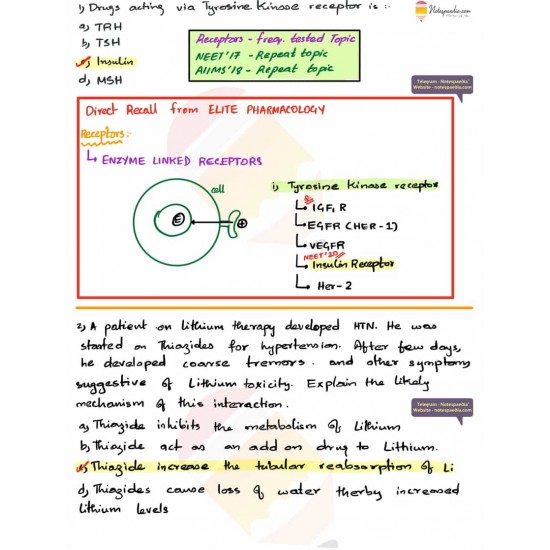 1) Drugs acting via Tyrosine Kinase receptor is :-
Notespaedia.com
a) TRH
b) TSH
c) Insulin
d) MSH
Receptors - freq. tested Topic
NEET'17 - Repeat topic
AIIMS'18 - Repeat topic
Telegram - Notespaedia
Website - notespaedia.com
Direct Recall from ELITE PHARMACOLOGY
Receptors:-
ENZYME LINKED RECEPTORS
cell
E
+
i) Tyrosine Kinase receptor
IGF1 R
EGFR (HER-1)
VEGFR
NEET'20
Insulin Receptor
Her-2
2) A patient on lithium therapy developed HTN. He was
started on Thiazides for hypertension. After few days,
he developed coarse tremors. and other symptoms
suggestive of Lithium toxicity. Explain the likely
mechanism of this interaction.
Telegram - Notespaedia
Website - notespaedia.com
a) Thiazide inhibits the metabolism of Lithium
b) Thiazide act as an add on drug to Lithium.
c) Thiazide increase the tubular reabsorption of Li
d) Thiazides cause loss of water therby increased
Lithium levels